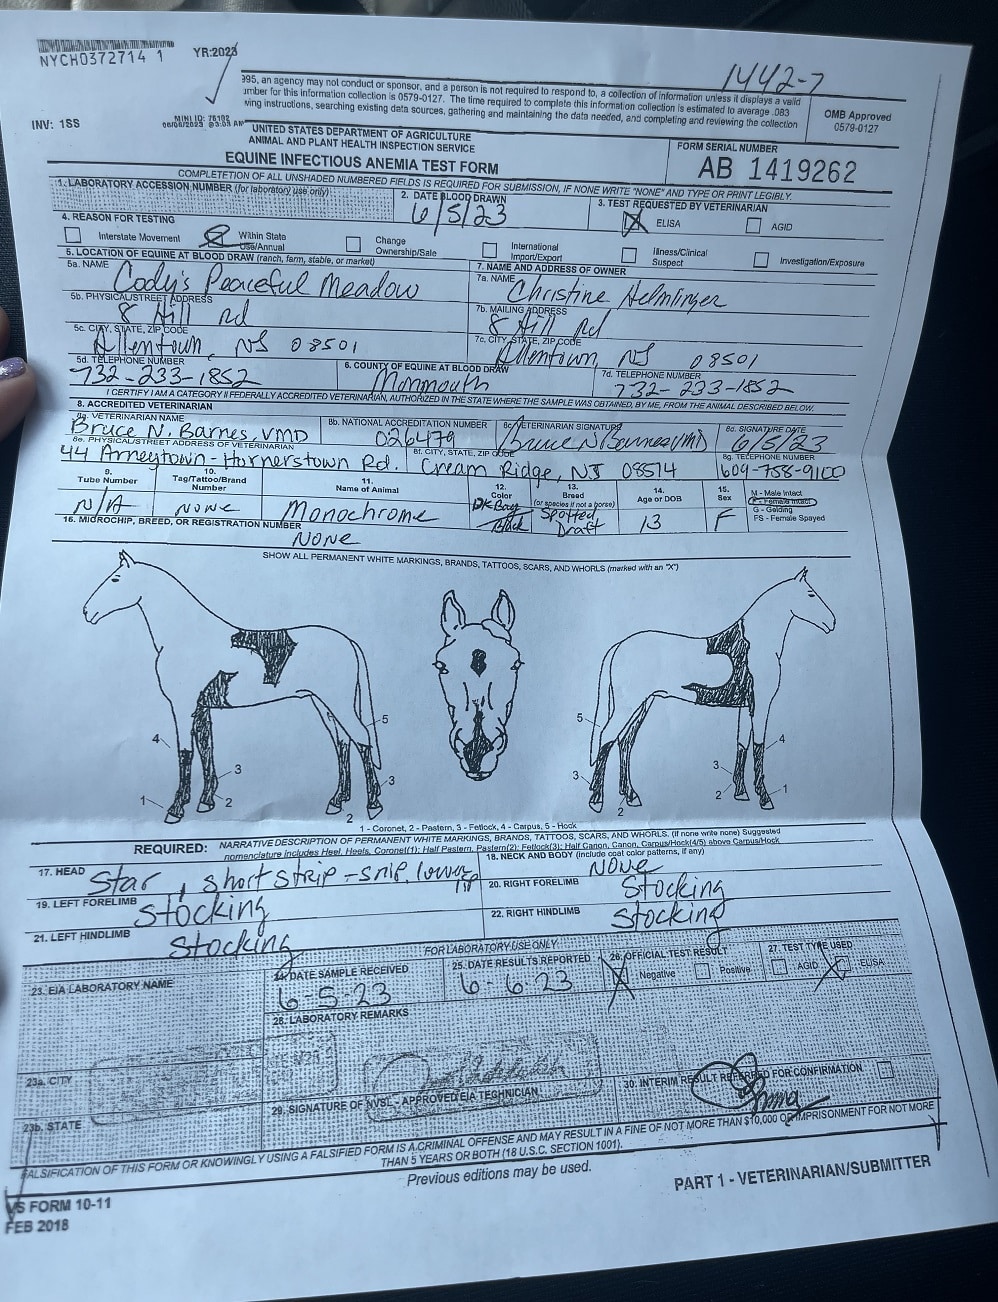 NYCH0372714 1
YR:2023
1442-7
995, an agency may not conduct or sponsor, and a person is not required to respond to, a collection of information unless it displays a valid
umber for this information collection is 0579-0127. The time required to complete this information collection is estimated to average .083
wing instructions, searching existing data sources, gathering and maintaining the data needed, and completing and reviewing the collection
OMB Approved
0579-0127
INV: 1SS
UNITED STATES DEPARTMENT OF AGRICULTURE
ANIMAL AND PLANT HEALTH INSPECTION SERVICE
EQUINE INFECTIOUS ANEMIA TEST FORM
FORM SERIAL NUMBER
AB 1419262
COMPLETETION OF ALL UNSHADED NUMBERED FIELDS IS REQUIRED FOR SUBMISSION, IF NONE WRITE "NONE" AND TYPE OR PRINT LEGIBLY.
1. LABORATORY ACCESSION NUMBER (for laboratory use only)
2. DATE BLOOD DRAWN
6/5/23
3. TEST REQUESTED BY VETERINARIAN
ELISA AGID
4. REASON FOR TESTING
Interstate Movement
Within State Use/Annual
Change Ownership/Sale
International Import/Export
Illness/Clinical Suspect
Investigation/Exposure
5. LOCATION OF EQUINE AT BLOOD DRAW (ranch, farm, stable, or market)
7. NAME AND ADDRESS OF OWNER
5a. NAME Cody's Peaceful Meadow
7a. NAME Christine Helmlinger
5b. PHYSICAL/STREET ADDRESS
8 Hill Rd
7b. MAILING ADDRESS
8 Hill Rd
5c. CITY, STATE, ZIP CODE
Allentown, NJ 08501
7c. CITY, STATE, ZIP CODE
Allentown, NJ 08501
5d. TELEPHONE NUMBER
732-233-1852
6. COUNTY OF EQUINE AT BLOOD DRAW
Monmouth
7d. TELEPHONE NUMBER
732-233-1852
I CERTIFY I AM A CATEGORY II FEDERALLY ACCREDITED VETERINARIAN, AUTHORIZED IN THE STATE WHERE THE SAMPLE WAS OBTAINED, BY ME, FROM THE ANIMAL DESCRIBED BELOW.
8. ACCREDITED VETERINARIAN
8a. VETERINARIAN NAME
Bruce N. Barnes, VMD
8b. NATIONAL ACCREDITATION NUMBER
026479
8c. VETERINARIAN SIGNATURE
Bruce N Barnes VMD
8d. SIGNATURE DATE
6/5/23
8e. PHYSICAL/STREET ADDRESS OF VETERINARIAN
44 Arneytown-Hornerstown Rd.
8f. CITY, STATE, ZIP CODE
Cream Ridge, NJ 08514
8g. TELEPHONE NUMBER
609-758-9100
9. Tube Number
N/A
10. Tag/Tattoo/Brand Number
None
11. Name of Animal
Monochrome
12. Color
DK Bay
13. Breed (or species if not a horse)
Spotted Draft
14. Age or DOB
13
15. Sex
F
M - Male Intact
F - Female Intact
G - Gelding
FS - Female Spayed
16. MICROCHIP, BREED, OR REGISTRATION NUMBER
None
SHOW ALL PERMANENT WHITE MARKINGS, BRANDS, TATTOOS, SCARS, AND WHORLS (marked with an "X")
4 5 3 1 2 2 3
5 4 3 3 2 1 2
1 - Coronet, 2 - Pastern, 3 - Fetlock, 4 - Carpus, 5 - Hock
REQUIRED: NARRATIVE DESCRIPTION OF PERMANENT WHITE MARKINGS, BRANDS, TATTOOS, SCARS, AND WHORLS. (If none write none) Suggested
nomenclature includes Heel, Heels, Coronet(1); Half Pastern, Pastern(2); Fetlock(3); Half Canon, Canon, Carpus/Hock(4/5) above Carpus/Hock
17. HEAD Star, short strip - snip, lower lip
18. NECK AND BODY (include coat color patterns, if any)
None
19. LEFT FORELIMB Stocking
20. RIGHT FORELIMB Stocking
21. LEFT HINDLIMB Stocking
22. RIGHT HINDLIMB Stocking
FOR LABORATORY USE ONLY
23. EIA LABORATORY NAME
24. DATE SAMPLE RECEIVED
6-5-23
25. DATE RESULTS REPORTED
6-6-23
26. OFFICIAL TEST RESULT
Negative Positive
27. TEST TYPE USED
AGID ELISA
28. LABORATORY REMARKS
23a. CITY
23b. STATE
29. SIGNATURE OF NVSL - APPROVED EIA TECHNICIAN
30. INTERIM RESULT REFERRED FOR CONFIRMATION
FALSIFICATION OF THIS FORM OR KNOWINGLY USING A FALSIFIED FORM IS A CRIMINAL OFFENSE AND MAY RESULT IN A FINE OF NOT MORE THAN $10,000 OR IMPRISONMENT FOR NOT MORE
THAN 5 YEARS OR BOTH (18 U.S.C. SECTION 1001).
Previous editions may be used.
VS FORM 10-11
FEB 2018
PART 1 - VETERINARIAN/SUBMITTER